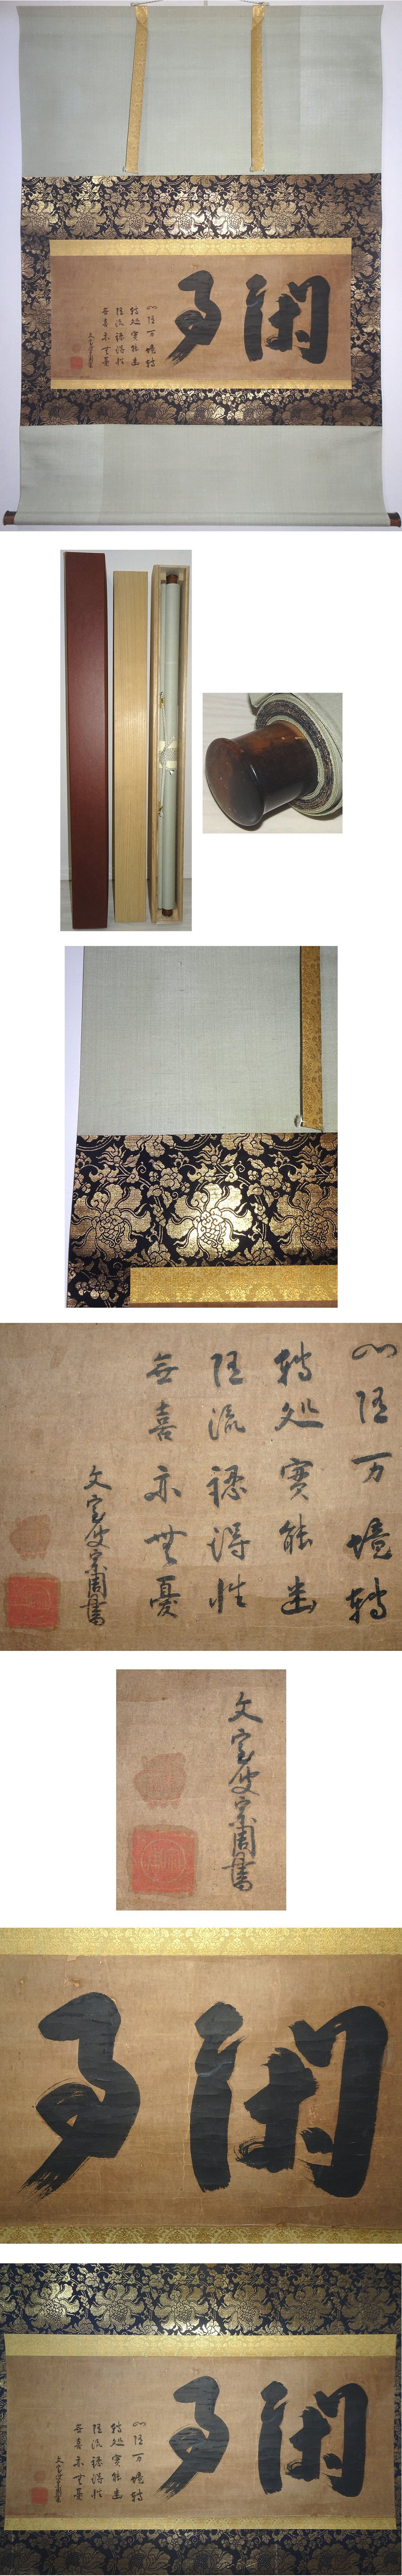 閑
心随万境轉
轉処實能幽
随流認得性
無喜亦無憂
文室叟宗周書